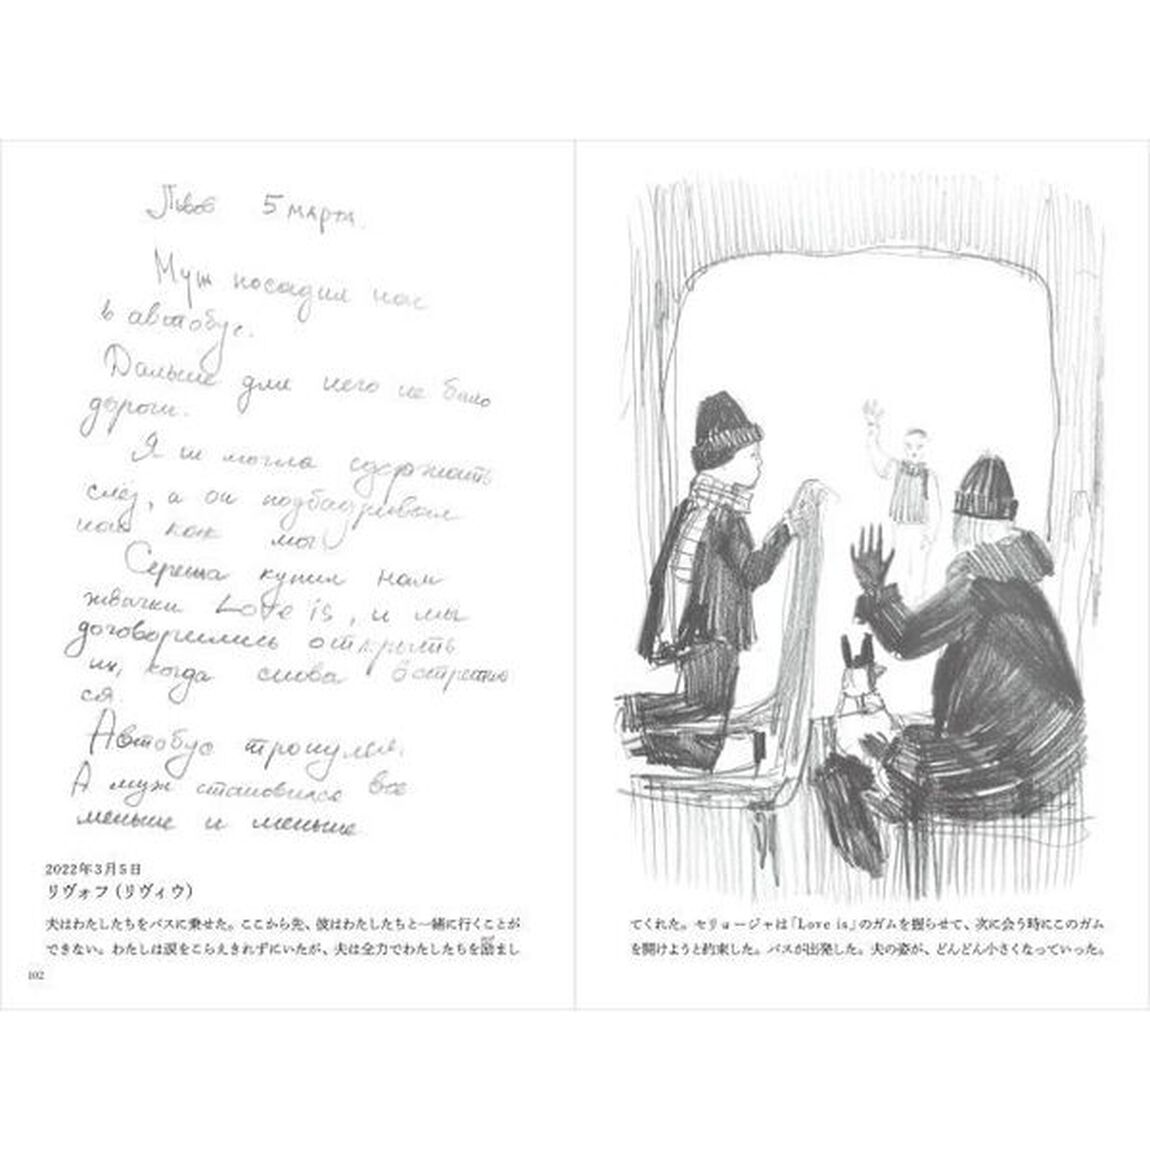 Львов 5 марта.
Муж посадил нас
в автобус.
Дальше для него не было
дороги.
Я не могла сдержать
слёз, а он подбадривал
нас как мог.
Сережа купил нам
жвачки Love is, и мы
договорились открыть
их, когда снова встретим
ся.
Автобус тронулся.
А муж становился все
меньше и меньше.
2022年3月5日
リヴォフ（リヴィウ）
夫はわたしたちをバスに乗せた。ここから先、彼はわたしたちと一緒に行くことが
できない。わたしは涙をこらえきれずにいたが、夫は全力でわたしたちを励まし
102
てくれた。セリョージャは「Love is」のガムを握らせて、次に会う時にこのガム
を開けようと約束した。バスが出発した。夫の姿が、どんどん小さくなっていった。